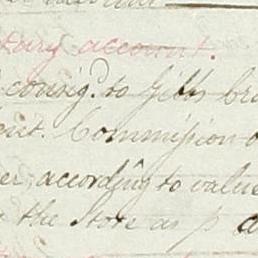 tary account.
consig.d to Gibbs
ent. Commission
er, according to value
the Store as p